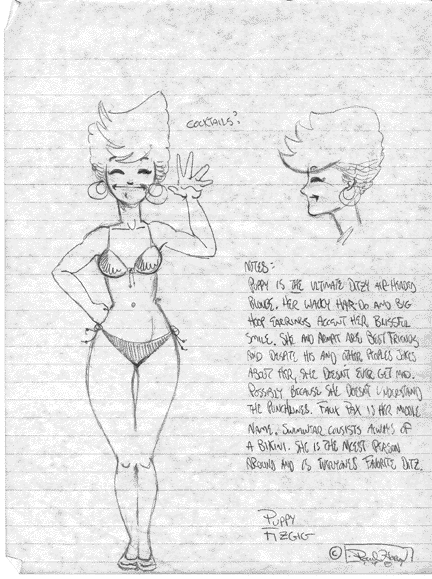 COCKTAILS?
NOTES:
PUPPY IS THE ULTIMATE DITZY AIR-HEADED
BLONDE. HER WACKY HAIR-DO AND BIG
HOOP EARRINGS ACCENT HER BLISSFUL
SMILE. SHE AND ARE BEST FRIENDS
AND DESPITE HIS AND OTHER PEOPLES JOKES
ABOUT HER, SHE DOESN'T EVER GET MAD.
POSSIBLY BECAUSE SHE DOESN'T UNDERSTAND
THE PUNCHLINES. FAUX PAX IS HER MIDDLE
NAME. SWIMWEAR CONSISTS ALWAYS OF
A BIKINI. SHE IS THE NICEST PERSON
AROUND AND IS EVERYONES FAVORITE DITZ.
PUPPY
FIZGIG
©